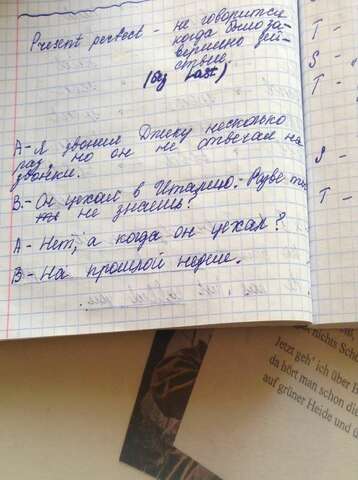 Present perfect - не говорится
когда было за-
вершено дей-
ствие.
(без Last)
А - Я звонил Джеку несколько
раз, но он не отвечал на
звонки.
В. - Он уехал в Италию. - Разве ты
не знаешь?
А - Нет, а когда он уехал?
В - На прошлой неделе.
T -
S -
T -
S -
T -
nichts Schö
Jetzt geh' ich über
da hört man schon die
auf grüner Heide und